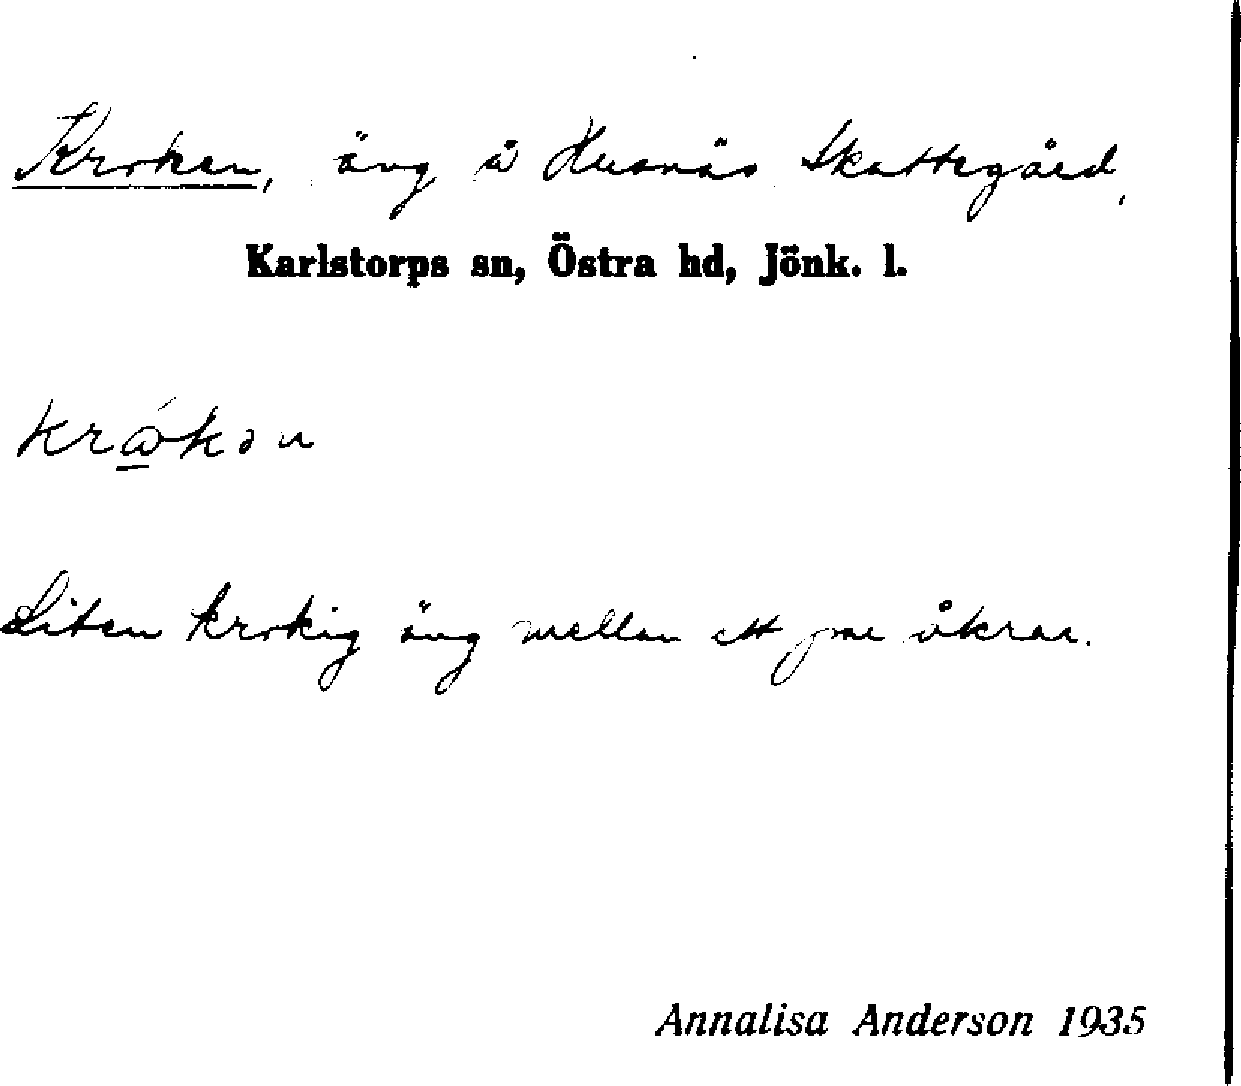 Kroken, äng å Husnäs Skattegård,
Karlstorps sn, Östra hd, Jönk. l.
Liten krokig äng mellan ett par åkrar.
Annalisa Anderson 1935